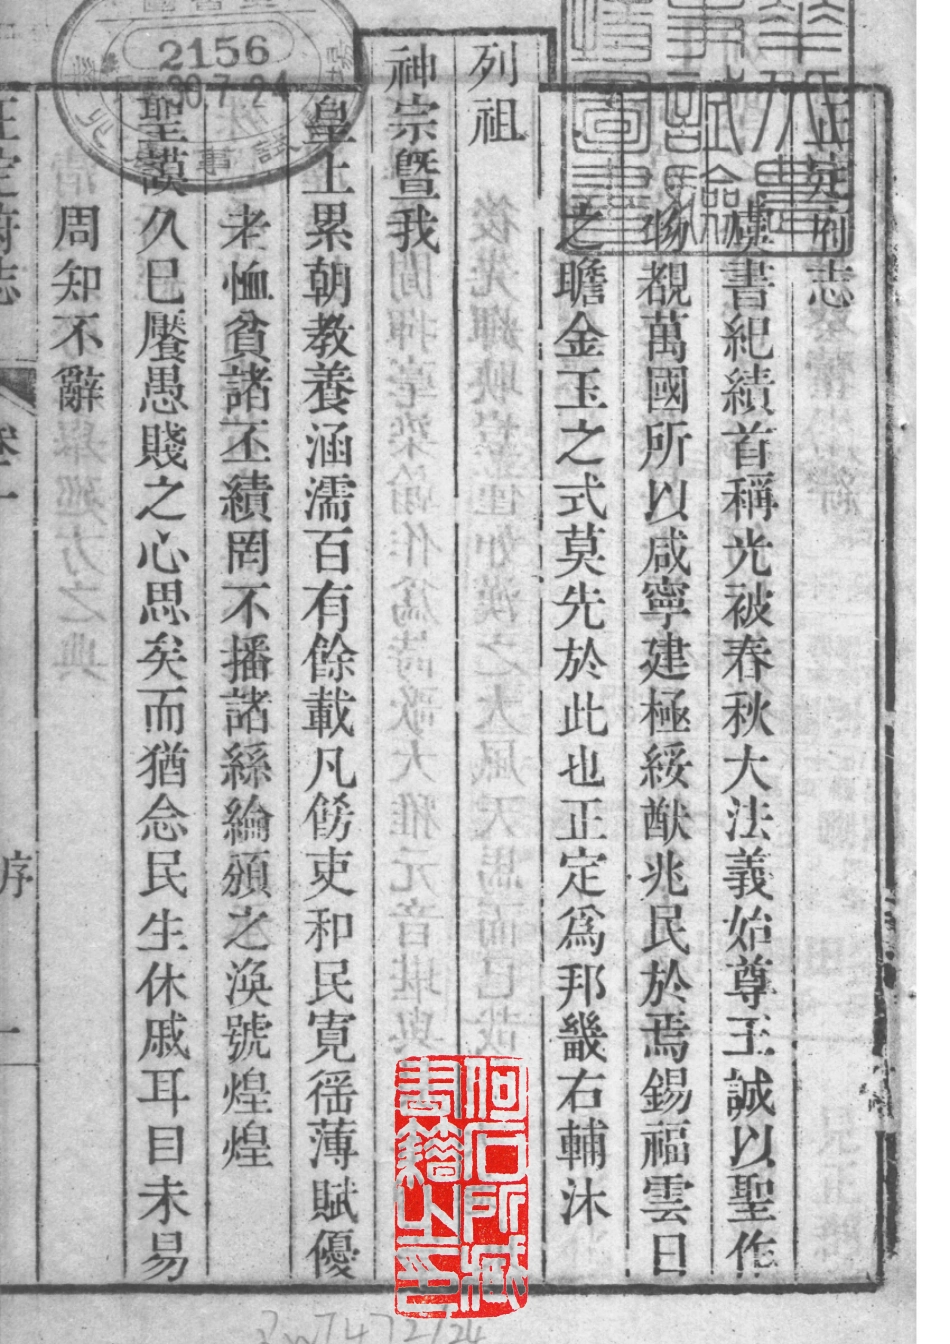 正定府志
虞書紀績首稱光被春秋大法義始尊王誠以聖作
物覩萬國所以咸寧建極綏猷兆民於焉錫福雲日
之瞻金玉之式莫先於此也正定爲邦畿右輔沐
列祖
神宗曁我
皇上累朝教養涵濡百有餘載凡飭吏和民寬徭薄賦優
老恤貧諸丕績罔不播諸絲綸頒之渙號煌煌
聖謨久已饜愚賤之心思矣而猶念民生休戚耳目未易
周知不辭
正定府志
卷一
序
一
2156
河石所臧
書籍之印